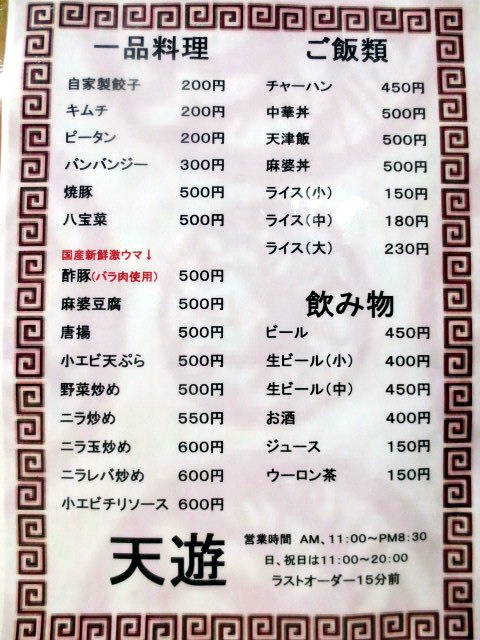 一品料理
自家製餃子 200円
キムチ 200円
ピータン 200円
バンバンジー 300円
焼豚 500円
八宝菜 500円
国産新鮮激ウマ↓
酢豚(バラ肉使用) 500円
麻婆豆腐 500円
唐揚 500円
小エビ天ぷら 500円
野菜炒め 500円
ニラ炒め 550円
ニラ玉炒め 600円
ニラレバ炒め 600円
小エビチリソース 600円
ご飯類
チャーハン 450円
中華丼 500円
天津飯 500円
麻婆丼 500円
ライス(小) 150円
ライス(中) 180円
ライス(大) 230円
飲み物
ビール 450円
生ビール(小) 400円
生ビール(中) 450円
お酒 400円
ジュース 150円
ウーロン茶 150円
天遊
営業時間 AM、11:00~PM8:30
日、祝日は11:00~20:00
ラストオーダー15分前